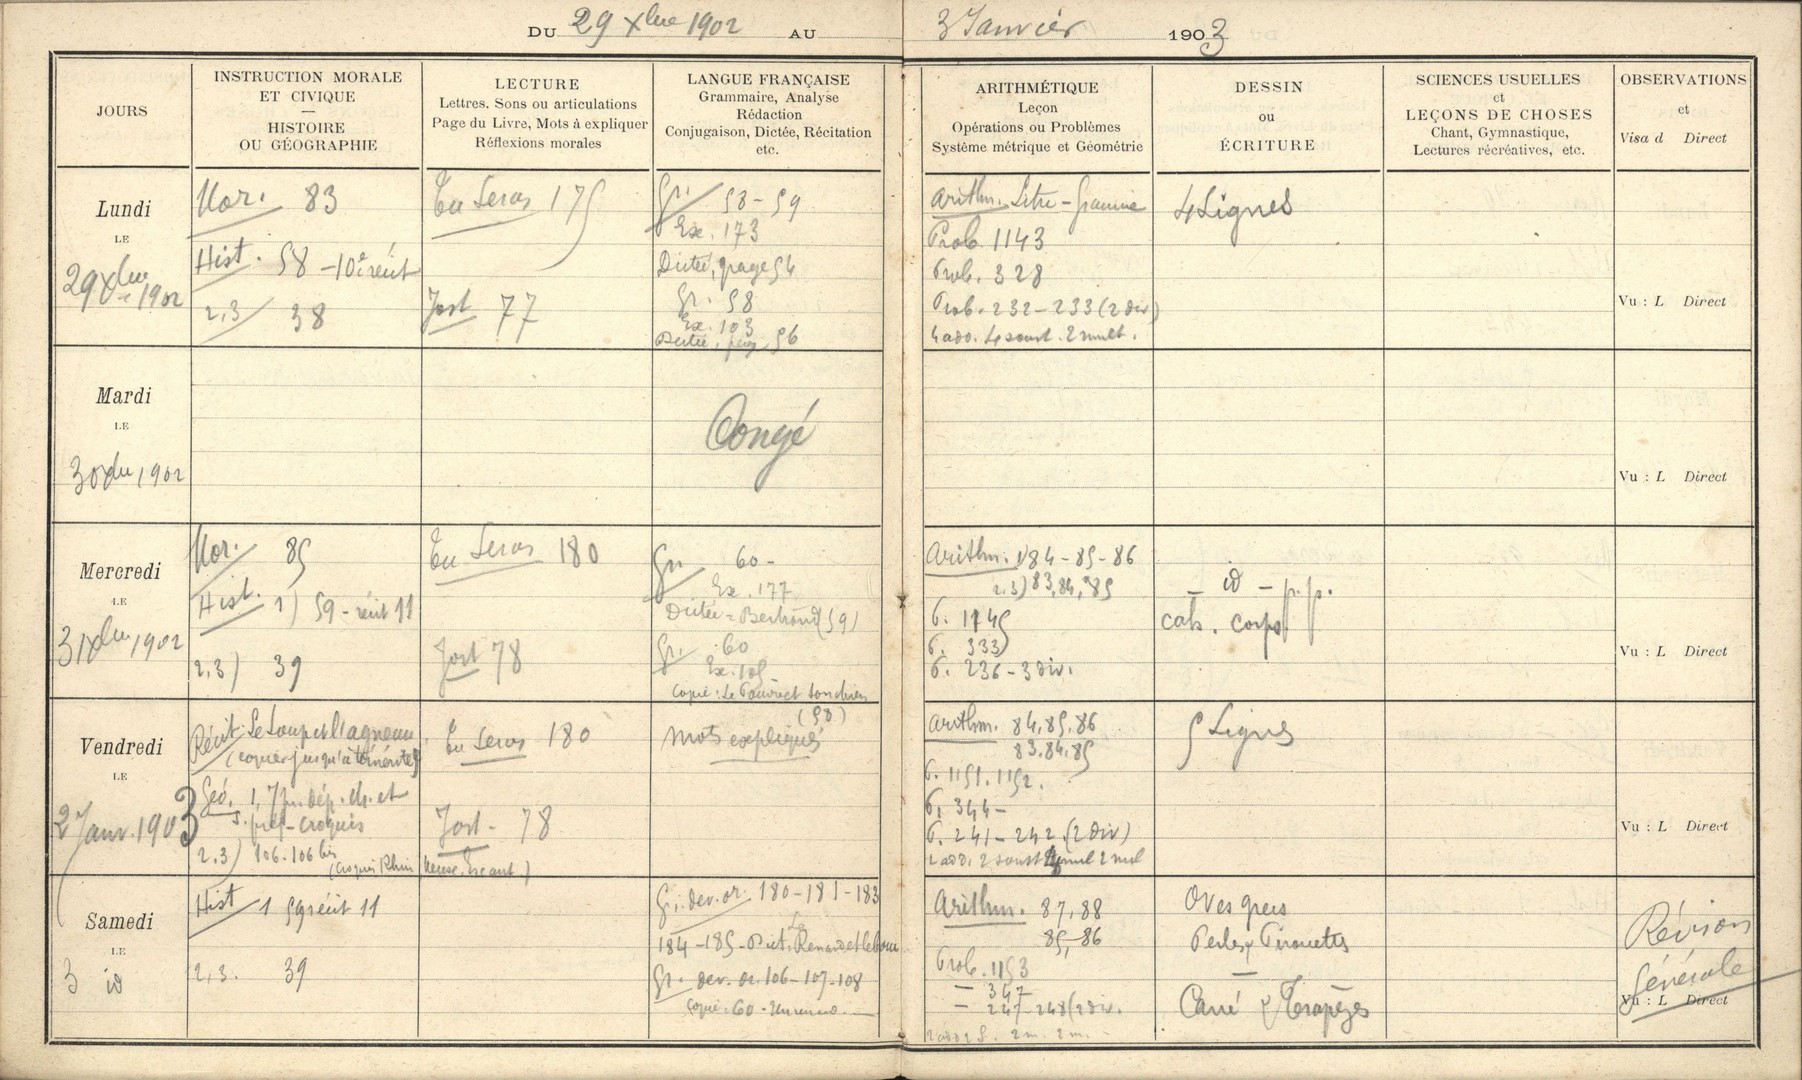 DU 29 Xbre 1902 AU 3 Janvier 1903
JOURS
INSTRUCTION MORALE
ET CIVIQUE
—
HISTOIRE
OU GÉOGRAPHIE
LECTURE
Lettres. Sons ou articulations
Page du Livre, Mots à expliquer
Réflexions morales
LANGUE FRANÇAISE
Grammaire, Analyse
Rédaction
Conjugaison, Dictée, Récitation
etc.
ARITHMÉTIQUE
Leçon
Opérations ou Problèmes
Système métrique et Géométrie
DESSIN
ou
ÉCRITURE
SCIENCES USUELLES
et
LEÇONS DE CHOSES
Chant, Gymnastique,
Lectures récréatives, etc.
OBSERVATIONS
et
Visa d Direct
Lundi
LE
29 Xbre 1902
Mor. 83
Hist. 58 - 10e récit
2,3/ 38
Tu Seras 175
Jost 77
Gr. 58-59
Ex. 173
Dictée, page 54
Gr. 58
Ex. 103
Dictée, page 56
Arithm. Litre - Gramme
Prob. 1143
Prob. 328
Prob. 232-233 (2 div)
4 add. 4 soust. 2 mult.
4 Lignes
Vu : L Direct
Mardi
LE
30 Xbre 1902
Congé
Vu : L Direct
Mercredi
LE
31 Xbre 1902
Mor. 85
Hist. 1) 59 - récit 11
2,3) 39
Tu Seras 180
Jost 78
Gr. 60-
Ex. 177
Dictée = Bertrand (59)
Gr. 60
Ex. 105
Copie : Le Pauvre et son chien
(58)
Arithm. 184-85-86
2,3) 83, 84, 85
P. 1145
P. 333
P. 236-3 div.
- id - p. p.
cah. corps
Vu : L Direct
Vendredi
LE
2 Janv. 1903
Récit. Le Loup et l'agneau
(copier jusqu'à témérité)
Géo. 1, 7 dép. ch. et
s. préf - croquis
2,3) 106-106 bis
(croquis Rhin, Meuse, Escaut)
Tu Seras 180
Jost - 78
Mots expliqués
Arithm. 84.85.86
83.84.85
P. 1151. 1152.
P. 344-
P. 241-242. (2 div)
5 Lignes
Vu : L Direct
Samedi
LE
3 id
Hist 1 59 récit 11
2,3. 39
Gr. dev. or. 180-181-183
184-185- Dict. Le Renard et le bouc
Gr. dev. or. 106-107-108
Copie. 60 -
Arithm. 87, 88
85-86
Prob. 1153
— 347
— 247-248 (2 div.
Oves grecs
Perles & Pirouettes
—
Carré & Trapèzes
Révision
Générale
Vu : L Direct